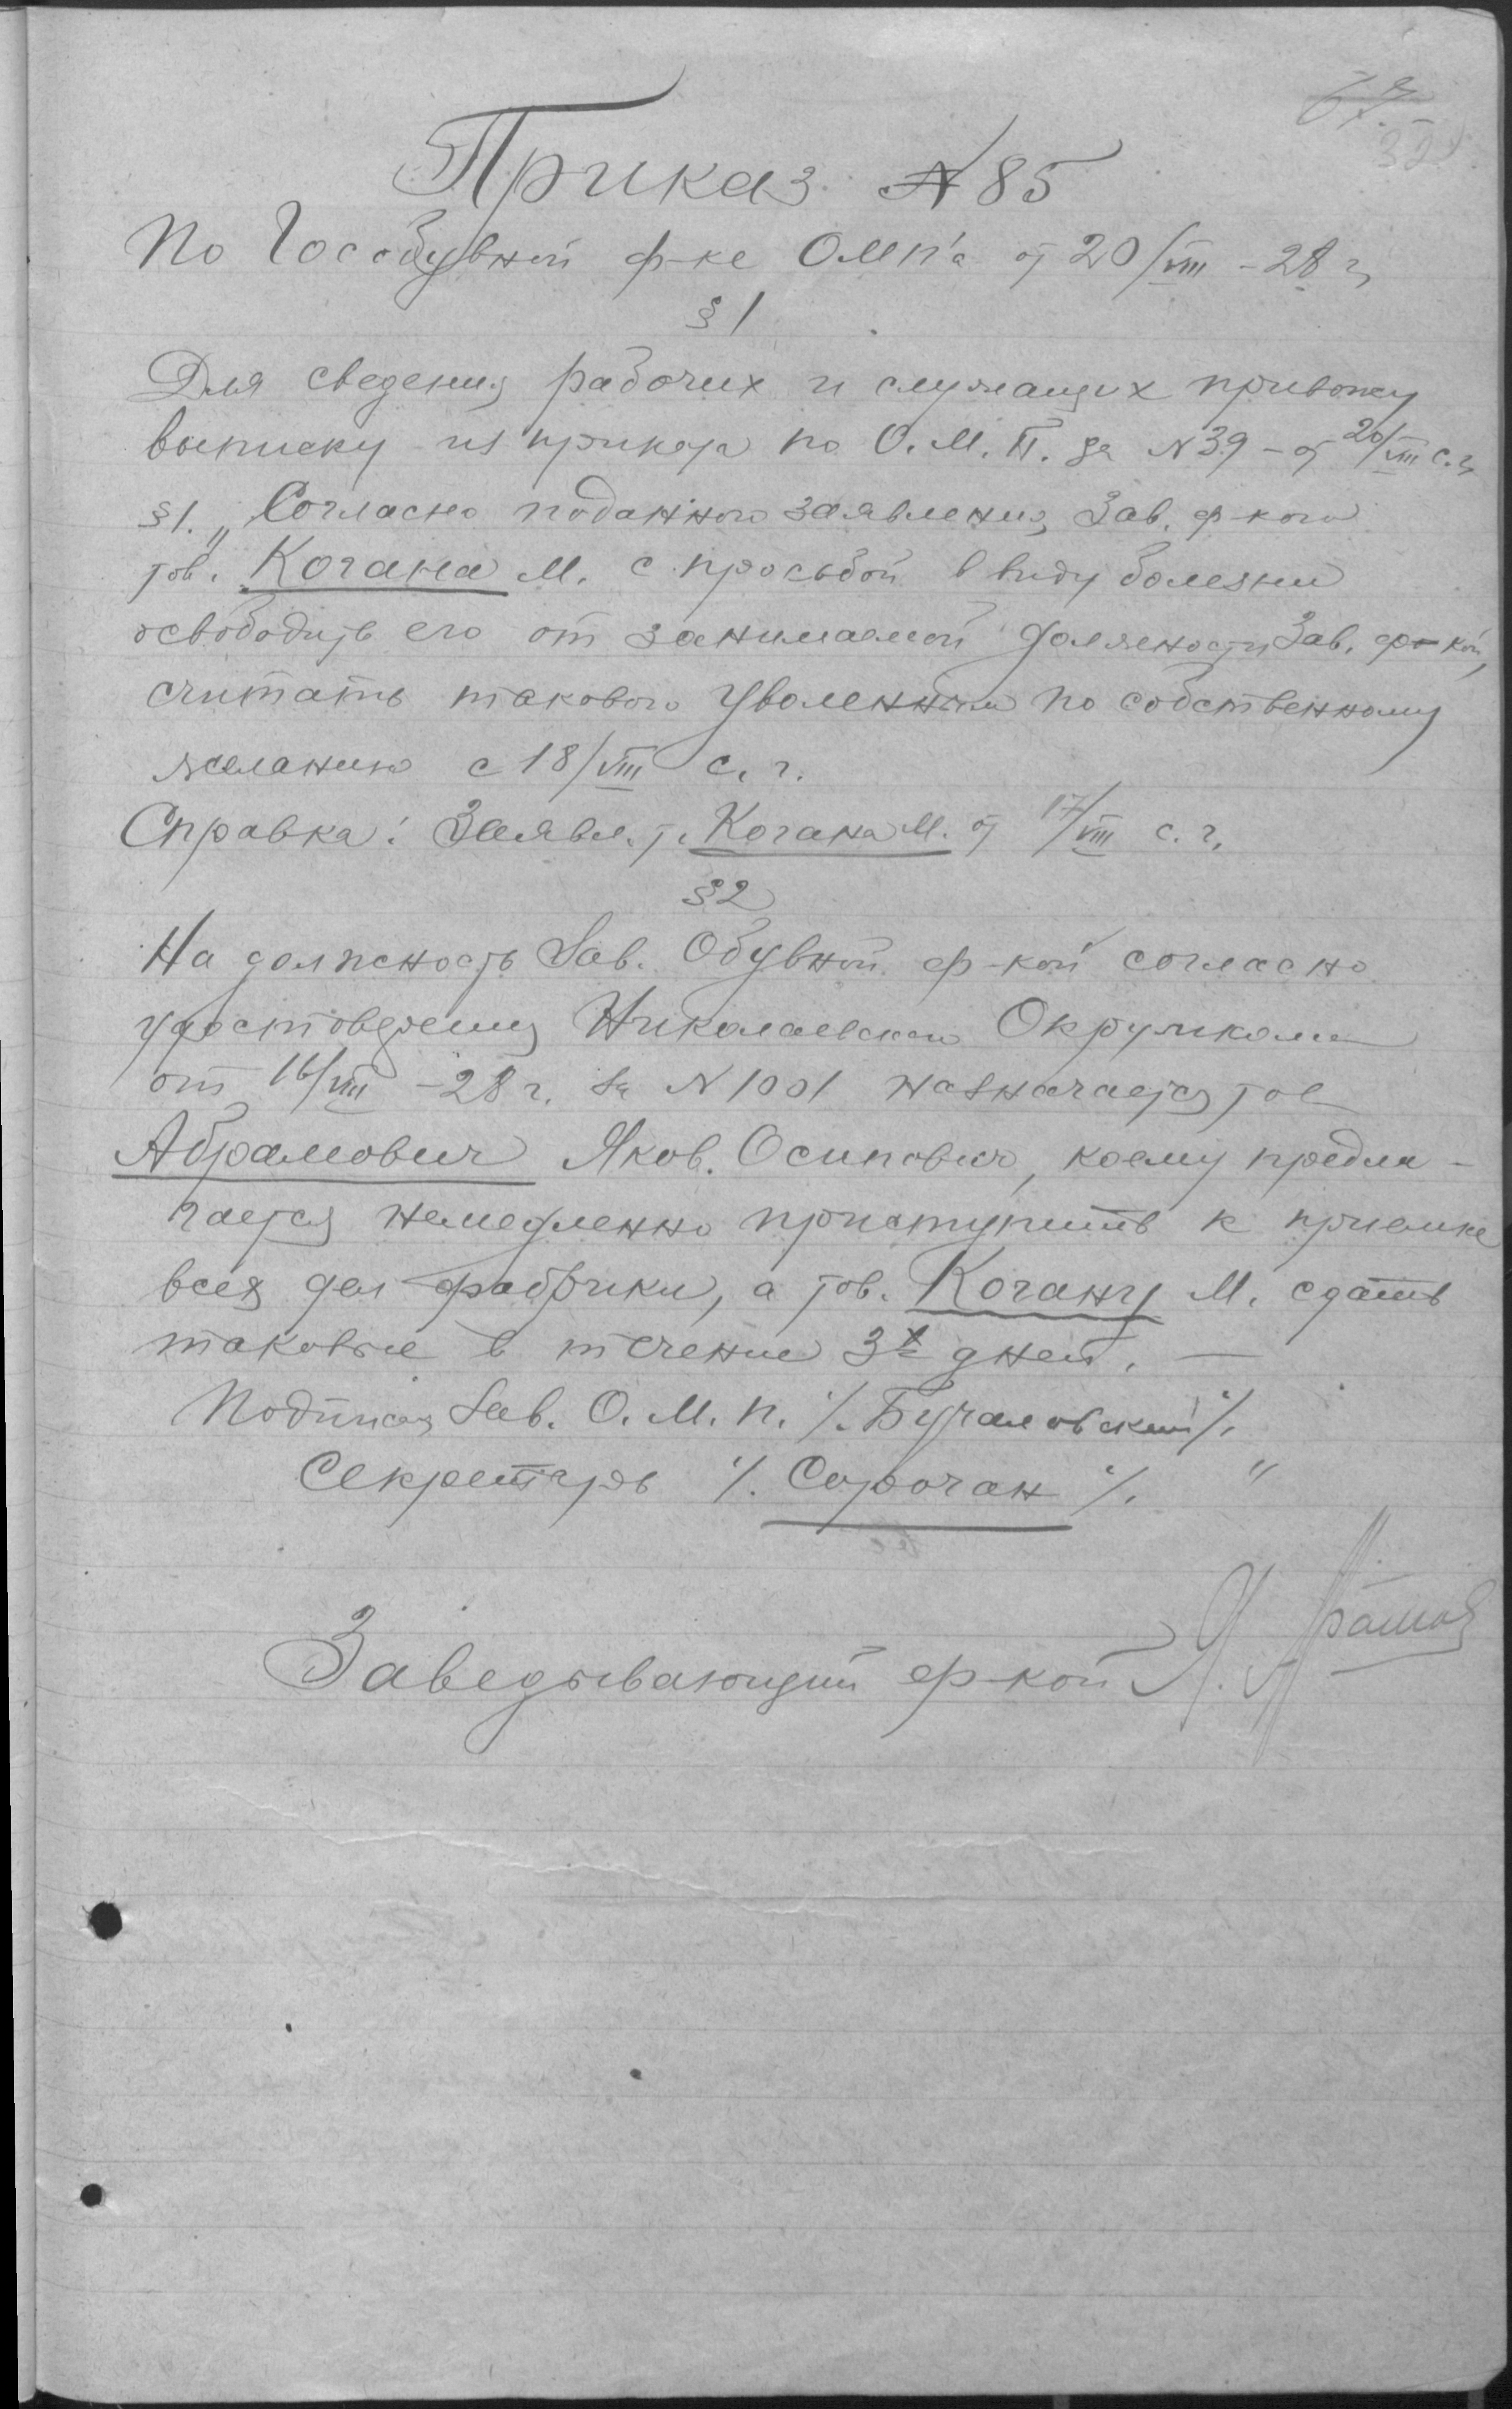 Приказ № 85
По Гособувной ф-ке ОМП'а от 20/VIII - 28 г.
§ 1
Для сведения рабочих и служащих привожу
выписку из приказа по О. М. П. за N 39 - от 20/VIII с. г.
§ 1. „Согласно поданного заявления Зав. ф-кой
тов. Когана М. с просьбой в виду болезни
освободить его от занимаемой должности Зав. ф-кой,
считать такового уволенным по собственному
желанию с 18/VIII с. г.
Справка: Заявл. т. Когана М. от 17/VIII с. г.
§ 2
На должность Зав. Обувной ф-кой согласно
удостоверения Николаевского Окружкома
от 16/VIII - 28 г. за N 1001 назначается тов
Абрамович Яков. Осипович, коему предла-
гается немедленно приступить к приемке
всех дел фабрики, а тов. Когану М. сдать
таковые в течение 3х дней. —
Подписал Зав. О. М. П. /. Бугаловский /.
Секретарь /. Сорочан /. "
Заведывающий ф-кой Я.